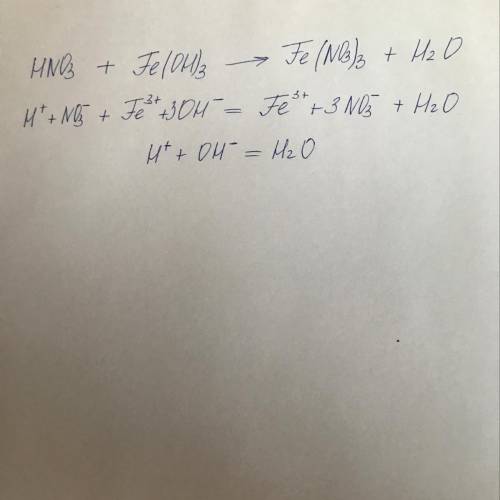 HNO3 + Fe(OH)3 → Fe(NO3)3 + H2O
H⁺ + NO3⁻ + Fe³⁺ + 3OH⁻ = Fe³⁺ + 3NO3⁻ + H2O
H⁺ + OH⁻ = H2O